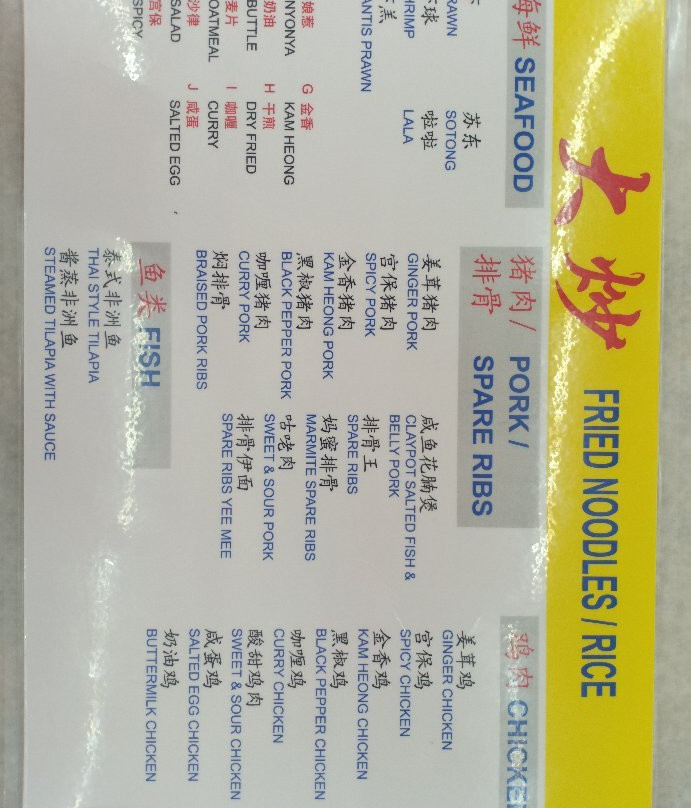 大炒 FRIED NOODLES / RICE
海鲜 SEAFOOD
苏东
SOTONG
啦啦
LALA
娘惹
NYONYA
奶油
麦片
OATMEAL
沙律
SALAD
宫保
SPICY
G 金香
KAM HEONG
H 干煎
DRY FRIED
I 咖喱
CURRY
J 咸蛋
SALTED EGG
猪肉 / PORK /
排骨 SPARE RIBS
姜茸猪肉
GINGER PORK
宫保猪肉
SPICY PORK
金香猪肉
KAM HEONG PORK
黑椒猪肉
BLACK PEPPER PORK
咖喱猪肉
CURRY PORK
焖排骨
BRAISED PORK RIBS
咸鱼花腩煲
CLAYPOT SALTED FISH &
BELLY PORK
排骨王
SPARE RIBS
妈蜜排骨
MARMITE SPARE RIBS
咕咾肉
SWEET & SOUR PORK
排骨伊面
SPARE RIBS YEE MEE
鱼类 FISH
泰式非洲鱼
THAI STYLE TILAPIA
酱蒸非洲鱼
STEAMED TILAPIA WITH SAUCE
鸡肉 CHICKEN
姜茸鸡
GINGER CHICKEN
宫保鸡
SPICY CHICKEN
金香鸡
KAM HEONG CHICKEN
黑椒鸡
BLACK PEPPER CHICKEN
咖喱鸡
CURRY CHICKEN
酸甜鸡肉
SWEET & SOUR CHICKEN
咸蛋鸡
SALTED EGG CHICKEN
奶油鸡
BUTTERMILK CHICKEN